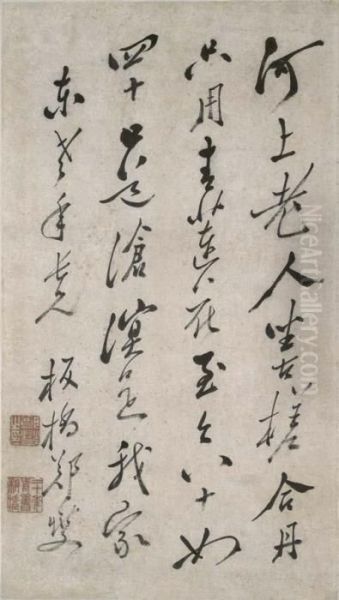 河上老人坐古槎合丹
只用青蓮花至今八十如
四十口道滄溟是我家
東老年長兄 板橋鄭燮
NiceArtGallery.com